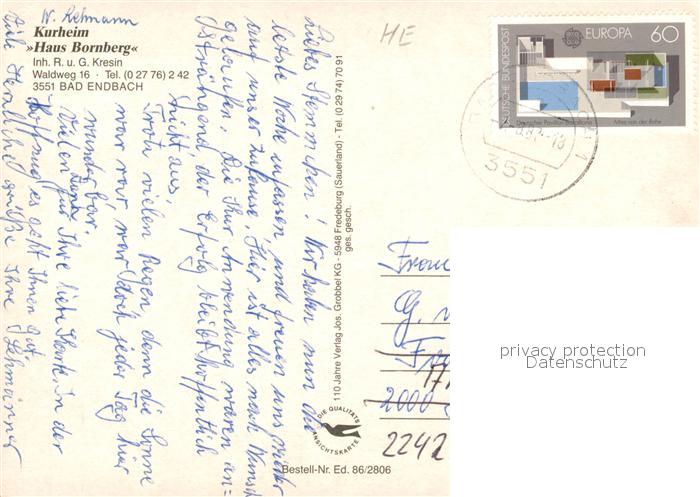 W. Lehmann
Kurheim
»Haus Bornberg«
Inh. R. u. G. Kresin
Waldweg 16 · Tel. (0 27 76) 2 42
3551 BAD ENDBACH
HE
DEUTSCHE BUNDESPOST
EUROPA 60
Deutscher Pavillon Barcelona
Mies van der Rohe
3551
Liebes Sternchen! Wir haben nun die
letzte Woche und freuen uns wieder
auf unser zuhause. Hier ist alles nach Wunsch
gelaufen. Die Kur Anwendung waren an-
strängend, der Erfolg bleibt hoffentlich
nicht aus.
Trotz vielen Regen, denn die Sonne
war rar war doch jeder Tag hier
wunderbar.
Vielen Dank für Ihre liebe Karte. in der
Hoffnung es geht Ihnen gut
Viele Herzliche grüße Ihre Lehmänner
110 Jahre Verlag Jos. Grobbel KG - 5948 Fredeburg (Sauerland) - Tel. (0 29 74) 70 91
ges. gesch.
DIE QUALITÄTS
ANSICHTSKARTE
Bestell-Nr. Ed. 86/2806
Frau
G.
2000
2242
privacy protection
Datenschutz